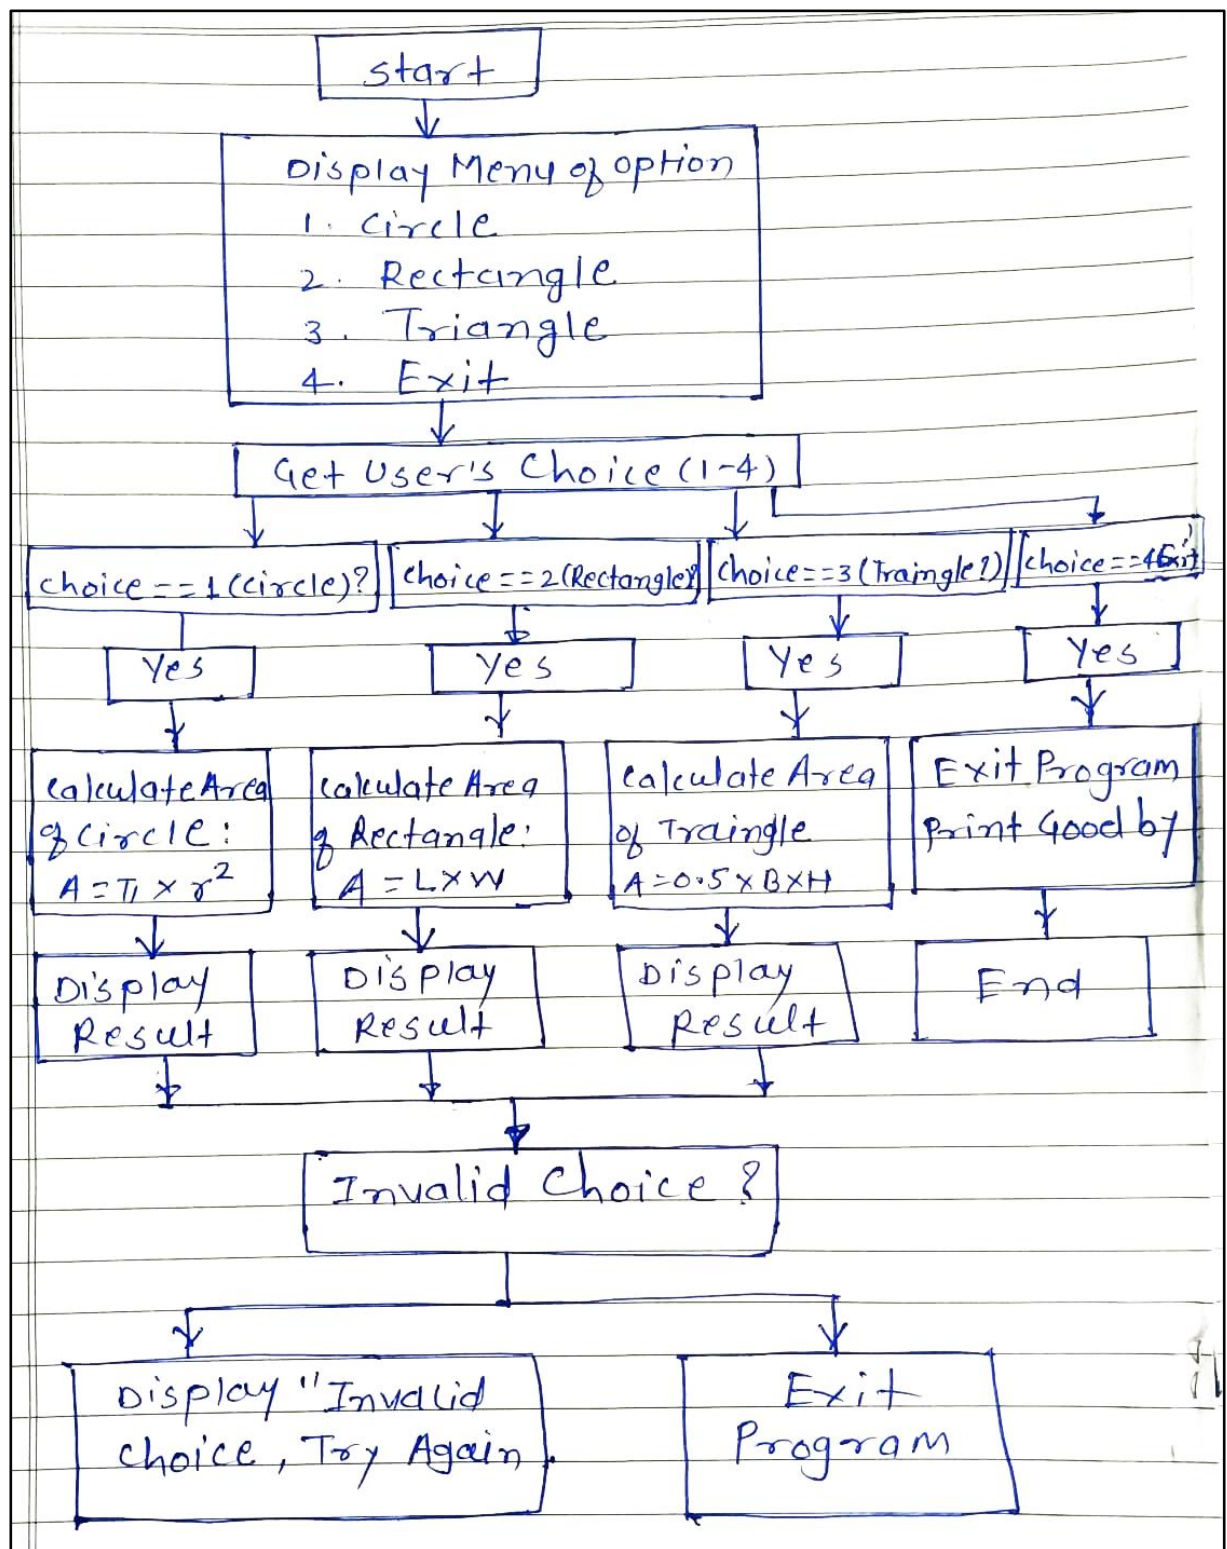 Start
Display Menu of option
1. Circle
2. Rectangle
3. Triangle
4. Exit
Get User's Choice (1-4)
choice == 1 (circle)?
choice == 2 (Rectangle)?
choice == 3 (Traingle?)
choice == 4 Exit
Yes
Yes
Yes
Yes
Calculate Area
of Circle:
A = π × r²
Calculate Area
of Rectangle:
A = L × W
Calculate Area
of Traingle
A = 0.5 × B × H
Exit Program
Print Good by
Display
Result
Display
Result
Display
Result
End
Invalid Choice ?
Display "Invalid
choice, Try Again
Exit
Program